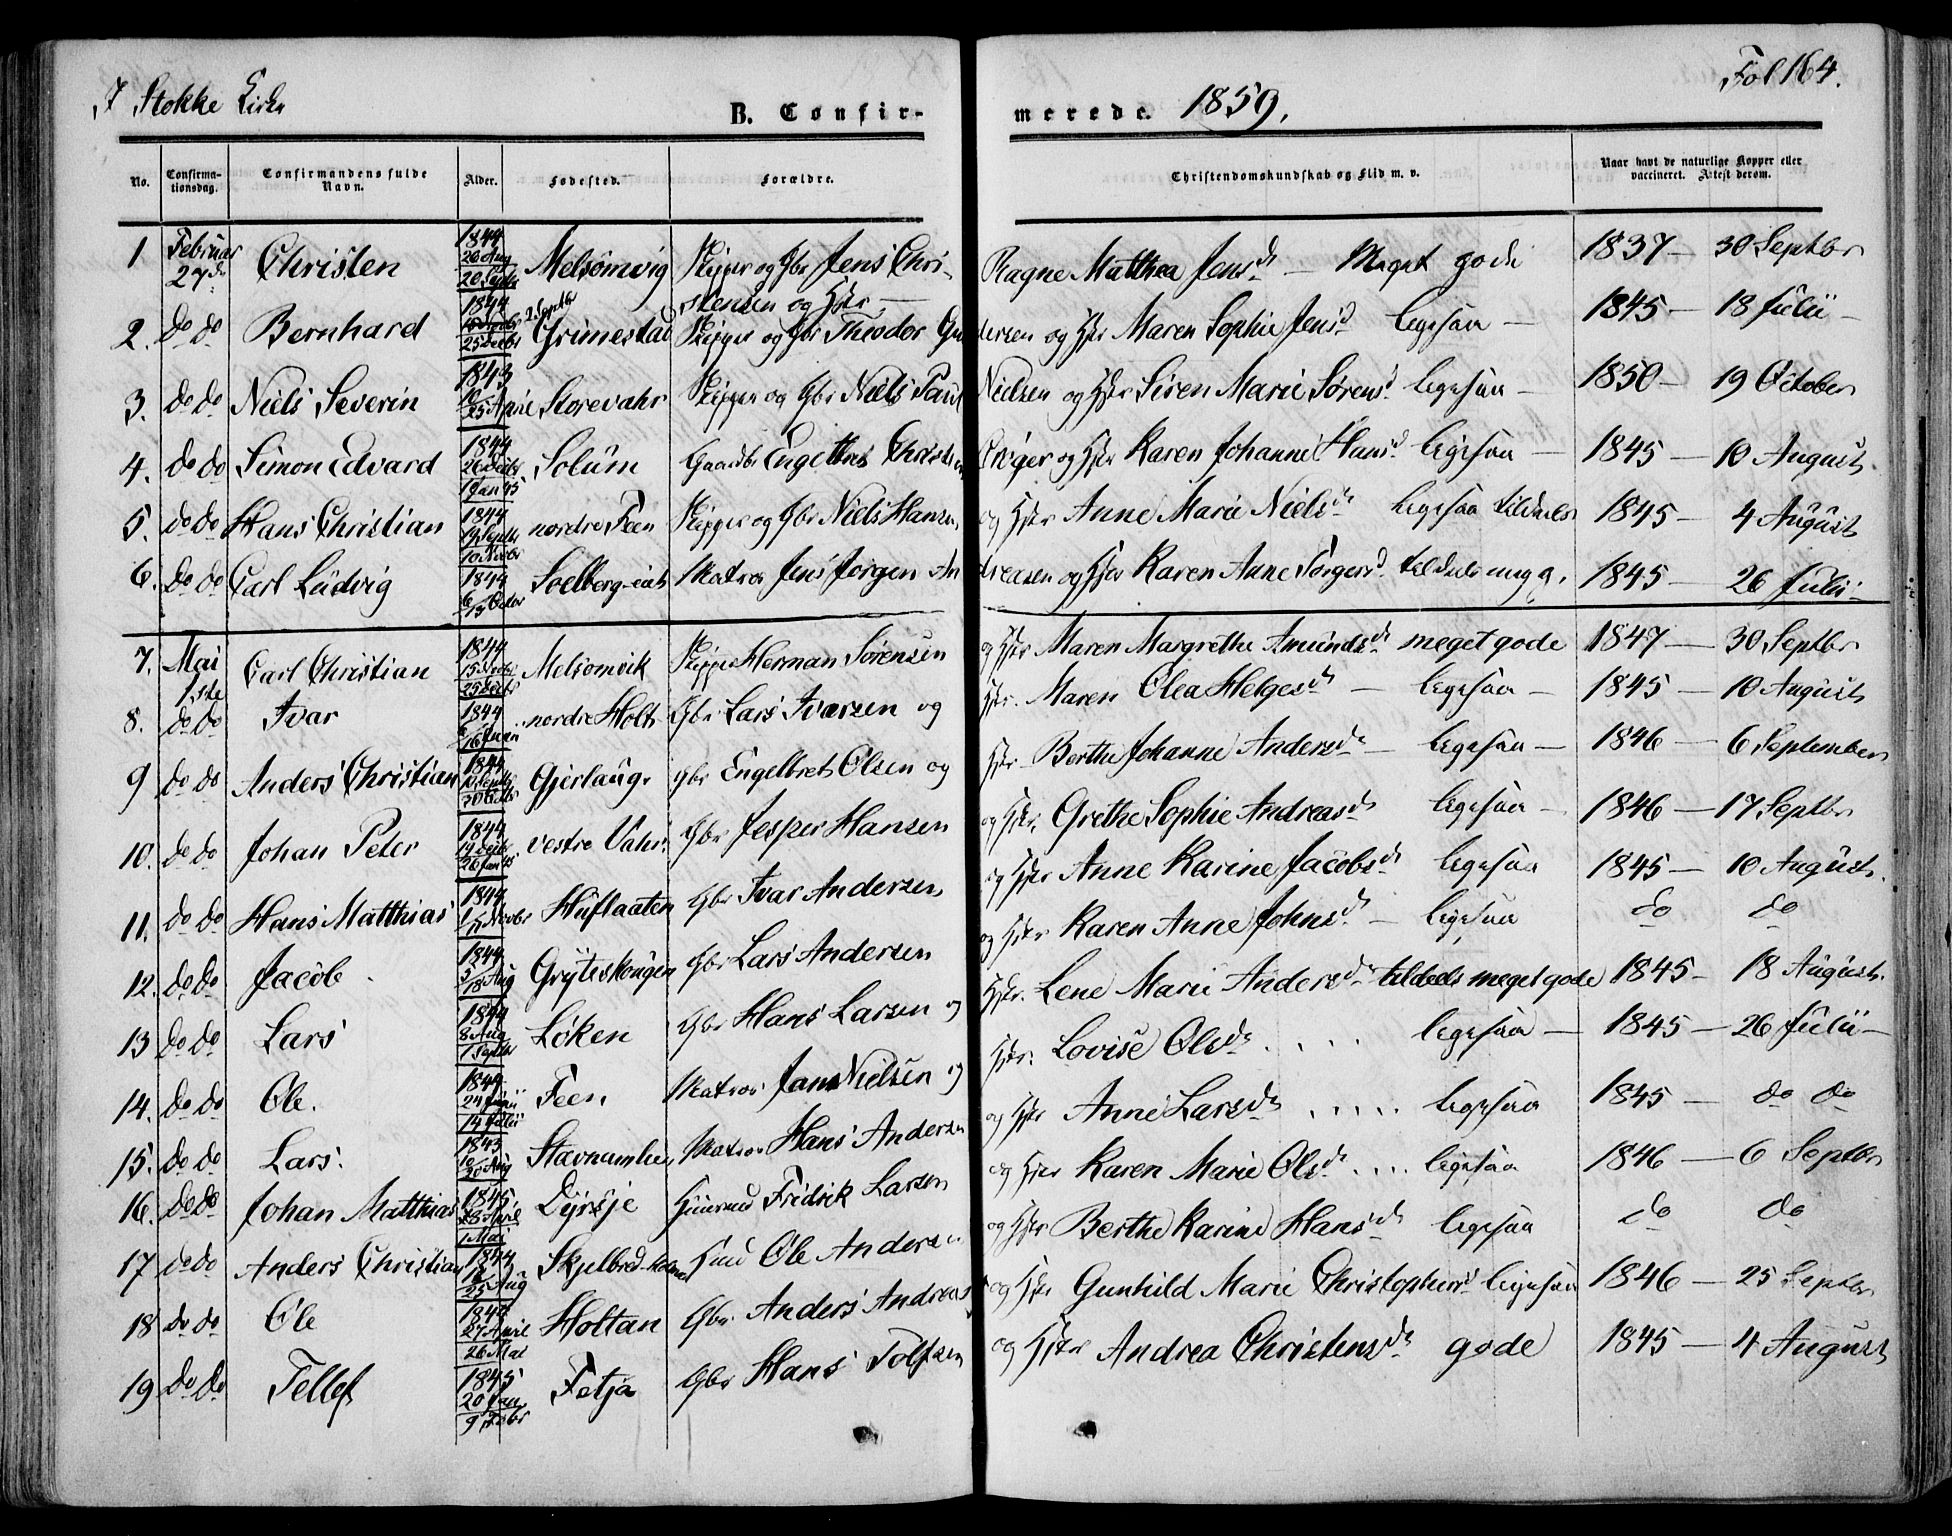 I Stokke Kirke
Fol 164.
B. Confir-merede. 1859.
No. Confirma-tionsdag. Confirmandens fulde Navn. Alder. Fødested. Forældre. Christendomskundskab og Flid m. v. Naar havt de naturlige Kopper eller vaccineret. Attest derom.
1 Februar 27de Christen 1844 20 Aug 20 Septbr Melsomvig Skipper og Gbr Jens Chri-stensen og Hstr Ragne Mathea Jensd. — Meget gode 1837 — 30 Septbr
2. do do Bernhard 1844 25 Decbr Grimestad Skipper og Gbr Theodor Gun dersen og Hstr Maren Sophie Jensd. ligesaa — 1845 — 18 Julii —
3. do do Niels Severin 1843 25 April Storevahr Skipper og Gbr Niels Paul Nielsen og Hstr Siren Marie Sørensd. ligesaa — 1850 — 19 October
4. do do Simon Edvard 1844 26 Decbr 1 Jan 45 Solum Gaardbr Christian Krøger og Hstr Karen Johanne Hansd. ligesaa — 1845 — 10 August.
5. do do Hans Christian 1844 19 Septbr 10 Novbr nordre Feen Skipper og Gbr Niels Hansen og Hstr Anne Marie Nielsd. ligesaa tildeels 1845 — 4 August
6. do do Carl Ludvig 1844 6/13 Octbr Soelberg-eiet Matros Jens Jørgen An dreasen og Hstr Karen Anne Jørgensd. tildeels meg g. 1845 — 26 Julii —
7. Mai 1ste Carl Christian 1844 25 Decbr Melsomvik Skipper Herman Sørensen og Hstr Maren Margrethe Amundsd. meget gode 1847 — 30 Septbr
8. do do Ivar 1844 16 Juni nordre Holt Gbr Lars Ivarsen og Hstr. Maren Olea Helgesd. — ligesaa — 1845 — 10 August
9 do do Anders Christian 1844 Gjerlaug. Gbr Engelbret Olsen og Hstr Berthe Johanne Andersd. — ligesaa — 1846 — 6 September
10. do do Johan Peter 1844 19 Decbr 20 Jan 45 vestre Vahr. Gbr Jesper Hansen og Hstr. Grethe Sophie Andreasd. ligesaa — 1846 — 17 Septbr
11. do do Hans Matthias 1844 Novbr Huflaaten Gbr Ivar Andersen og Hstr Anne Karine Jacobsd. ligesaa 1845 — 10 August.
12. do do Jacob 1844 5/18 Aug Gryteskougen Gbr Lars Andersen og Hstr Karen Anne Johnsd. — ligesaa do do
13 do do Lars 1844 8 Aug 1 Septbr Løken Gbr Hans Larsen og Hstr. Lene Marie Andersd. tildeels meget gode 1845 — 18 August.
14. do do Ole. 1844 24 Juni 14 Julii Feen Matros Jans Nielsen og Hstr. Lovise Olsd. .... ligesaa — 1845 — 26 Julii —
15. do do Lars. 1843 Aug Matros Hans Andersen og Hstr Anne Larsd. ..... ligesaa 1845 — do do
16. do do Johan Matthias 1845 28 April 1 Mai Dyrsje Fredrik Larsen og Hstr Karen Marie Olsd. ... ligesaa 1846 — 6 Septbr
17 do do Anders Christian 1844 25 Aug Skjelbred- Ole Andersen og Hstr Berthe Karine Hansd. ligesaa do do
18 do do Ole 1844 27 April 26 Mai Holtan Gbr. Anders Andreas og Hstr Gunhild Marie Christophersd. ligesaa 1846 — 25 Septbr
19 do do Tellef 1845 20 Jan 9 Febr Fetja Gbr Hans Tolfsen og Hstr Andrea Christensd. gode 1845 — 4 August